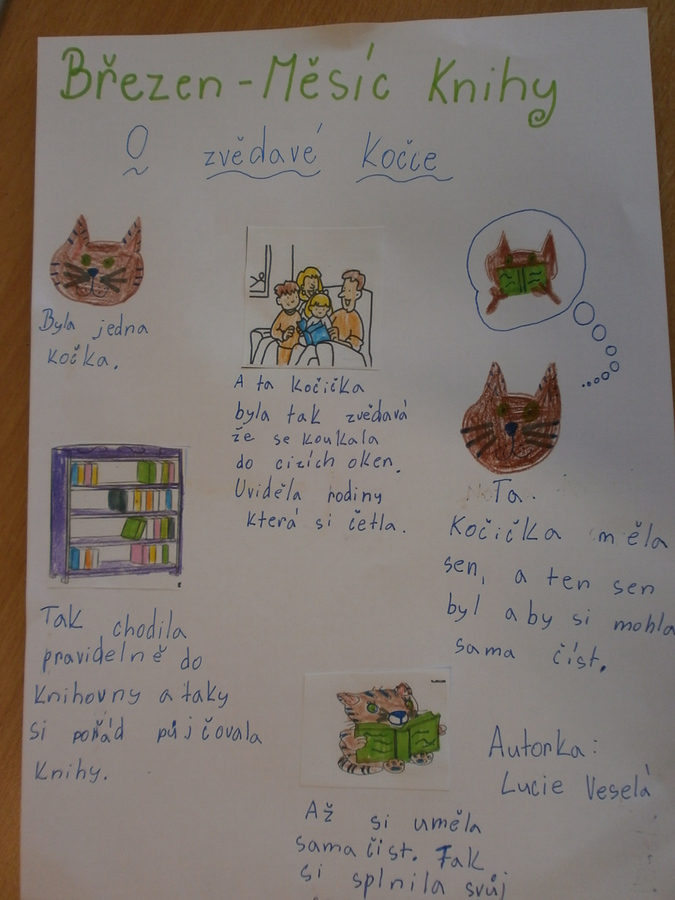 Březen - Měsíc Knihy
O zvědavé Kočce
Byla jedna
kočka.
A ta Kočička
byla tak zvědavá
že se koukala
do cizích oken.
Uviděla rodiny
která si četla.
Ta.
Kočička měla
sen, a ten sen
byl aby si mohla
sama číst.
Tak chodila
pravidelně do
Knihovny a taky
si pořád půjčovala
Knihy.
Až si uměla
sama číst. Tak
si splnila svůj
Autorka:
Lucie Veselá